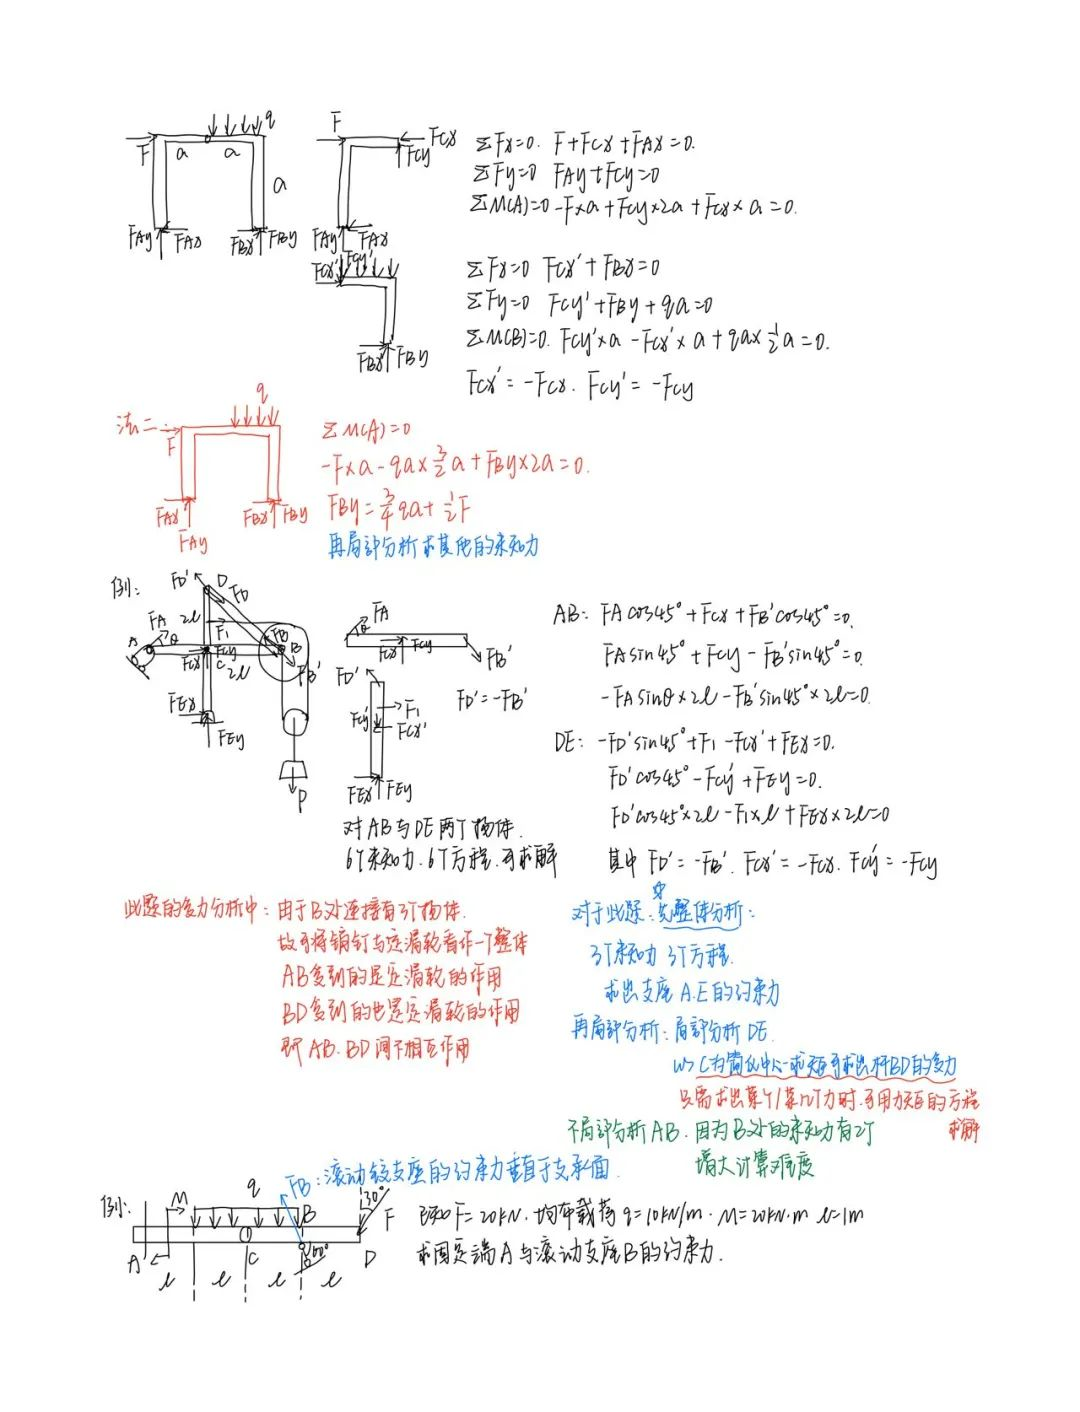 q
F a a
a
FAy FAx FBx FBy
F
FCx
FCy
FAy FAx
ΣFx=0. F+FCx+FAx=0.
ΣFy=0 FAy+FCy=0
ΣM(A)=0 -F×a+FCy×2a+FCx×a=0.
FCx' FCy'
FBx FBy
ΣFx=0 FCx'+FBx=0
ΣFy=0 FCy'+FBy+qa=0
ΣM(B)=0. FCy'×a-FCx'×a+qa×½a=0.
FCx'=-FCx. FCy'=-FCy
法二:
q
F
FAx FBx FBy
FAy
ΣM(A)=0
-F×a-qa×3/2a+FBy×2a=0.
FBy=3/4qa+½F
再局部分析求其他的未知力
例:
FD' D FD
FA 2l F1 FB
A θ FCx FCy B
C 2l FB'
FEx
FEy
P
FA
FCx FCy
FB'
FD'
F1
FCy' FCx'
FEx FEy
FD'=-FB'
对AB与DE两个物体.
6个未知力.6个方程.可求解
AB: FAcos45°+FCx+FB'cos45°=0.
FAsin45°+FCy-FB'sin45°=0.
-FAsinθ×2l-FB'sin45°×2l=0.
DE: -FD'sin45°+F1-FCx'+FEx=0.
FD'cos45°-FCy'+FEy=0.
FD'cos45°×2l-F1×l+FEx×2l=0
其中 FD'=-FB'. FCx'=-FCx. FCy'=-FCy
此题的受力分析中: 由于B处连接有3个物体.
故可将销钉与定滑轮看作一个整体
AB受到的是定滑轮的作用
BD受到的也是定滑轮的作用
即AB.BD间不相互作用
对于此题: 先整体分析:
3个未知力 3个方程.
求出支座A.E的约束力
再局部分析: 局部分析DE.
以C为简化中心求矩可求出杆BD的受力
只需求出某个/某几个力时.可用力矩的方程
求解
不局部分析AB.因为B处的未知力有2个
增大计算难度
FB:滚动铰支座的约束力垂直于支承面.
例:
M q B 30° F
A C 60° D
l l l l
已知F=20kN.均布载荷q=10kN/m.M=20kN·m l=1m
求固定端A与滚动支座B的约束力.